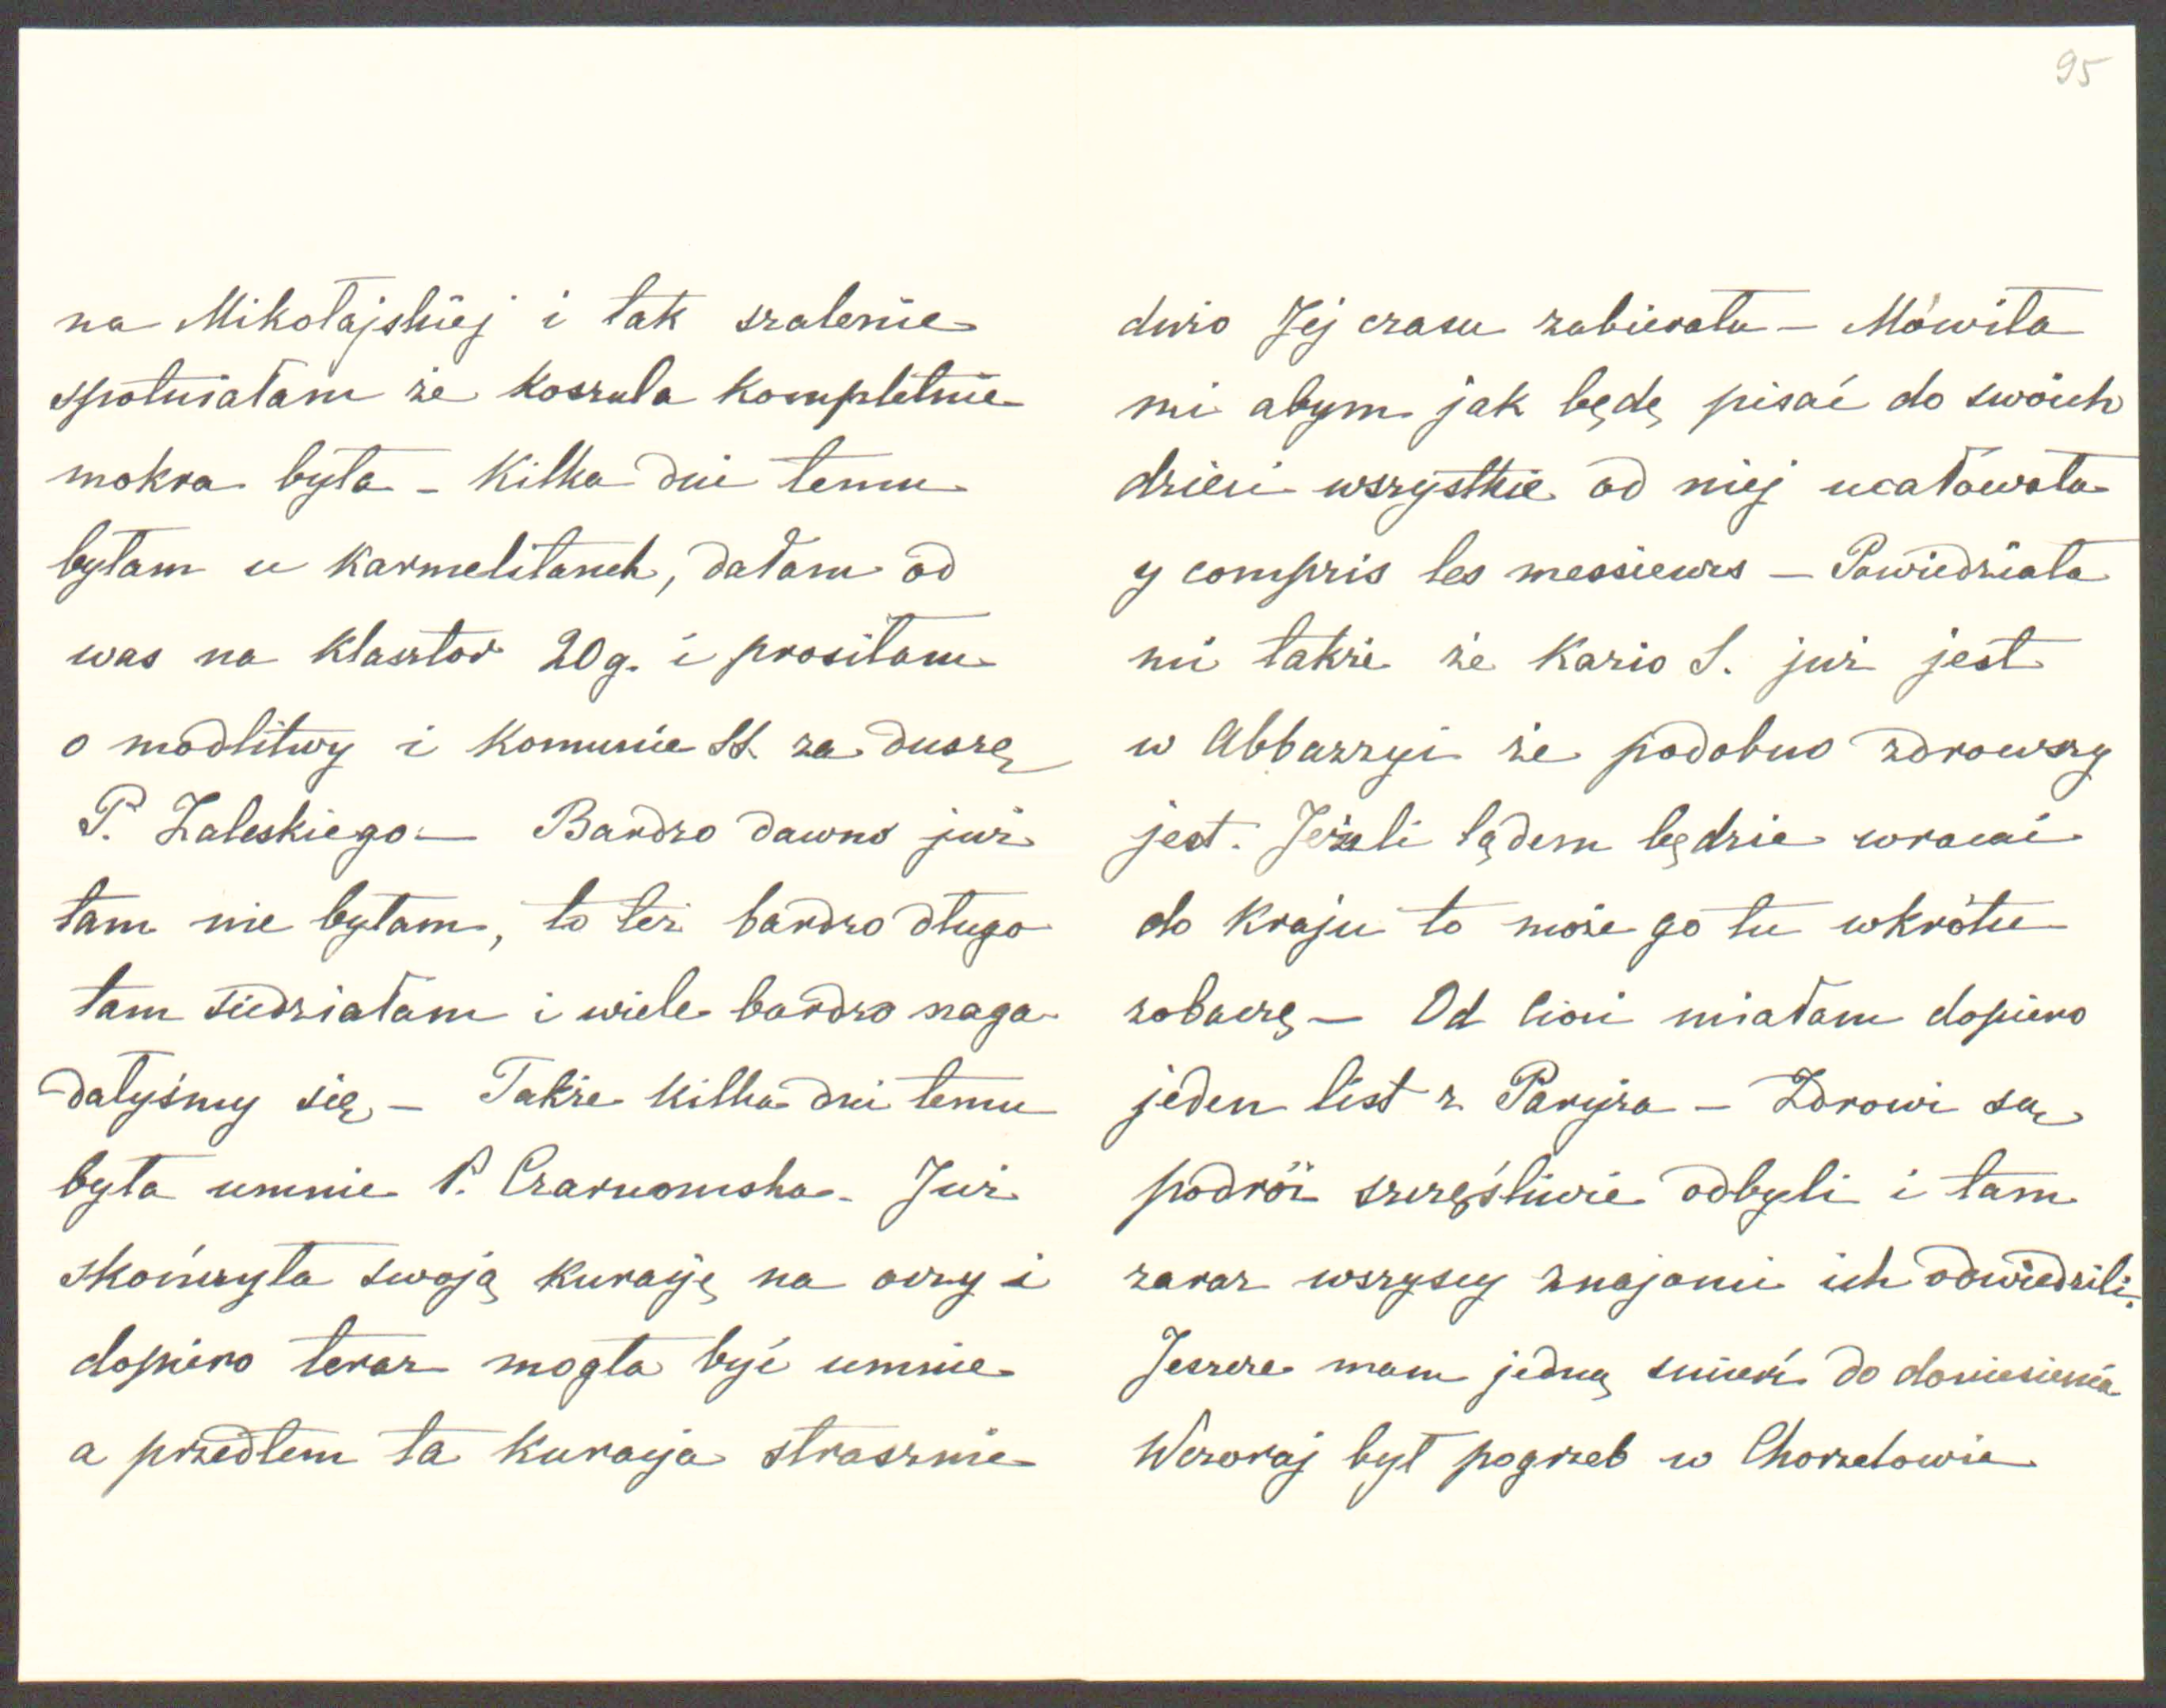 95
na Mikołajskiej i tak szalenie
spotniałam że koszula kompletnie
mokra była – Kilka dni temu
byłam u Karmelitanek, dałam od
was na klasztor 20 g. i prosiłam
o modlitwy i komunie SS. za duszę
P. Zaleskiego – Bardzo dawno już
tam nie byłam, to też bardzo długo
tam siedziałam i wiele bardzo naga-
dałyśmy się – Także kilka dni temu
była umnie P. Czarnomska – Już
skończyła swoją kuracyę na oczy i
dopiero teraz mogła być umnie
a przedtem ta kuracya strasznie
dużo Jej czasu zabierała – Mówiła
mi abym jak będę pisać do swoich
dzieci wszystkie od niej ucałowała
y compris les messieurs – Powiedziała
mi także że Kazio S. już jest
w Abbazzyi że podobno zdrowszy
jest. Jeżeli lądem będzie wracać
do kraju to może go tu wkrótce
zobaczę – Od Cioci miałam dopiero
jeden list z Paryża – Zdrowi są
podróż szczęśliwie odbyli i tam
zaraz wszyscy znajomi ich odwiedzili.
Jeszcze mam jedną śmierć do doniesienia
Wczoraj był pogrzeb w Chorzelowie